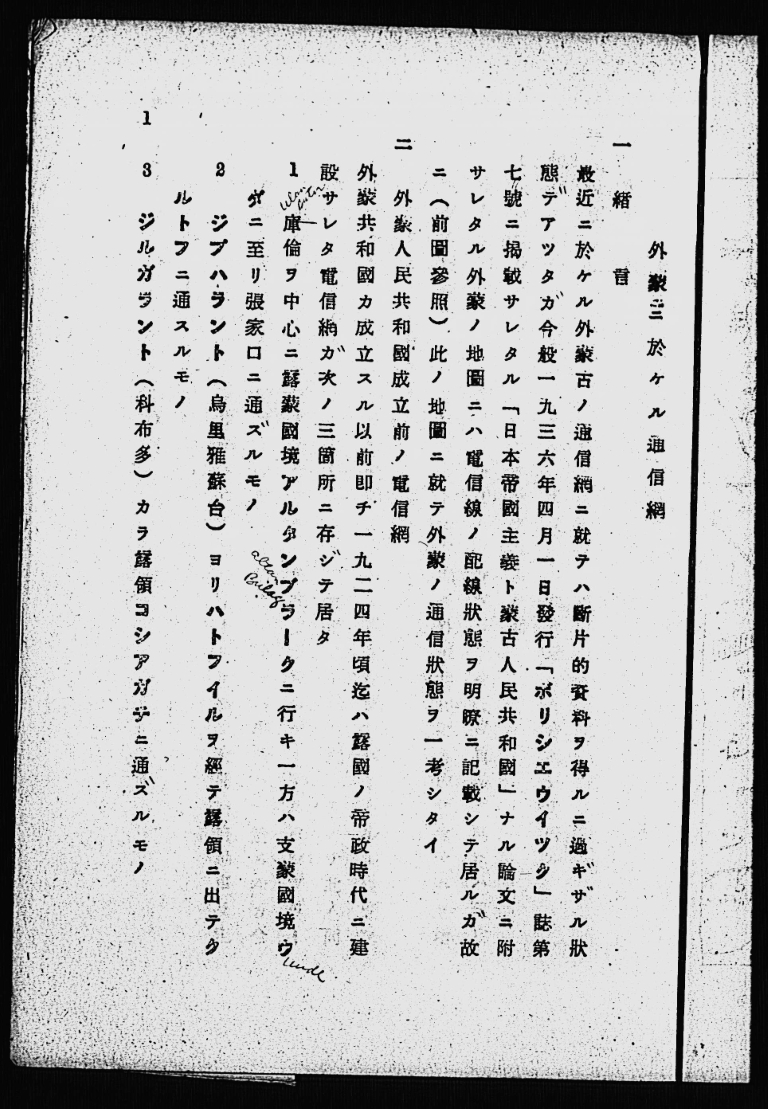 外蒙ニ於ケル通信網
一 緒言
最近ニ於ケル外蒙古ノ通信網ニ就テハ斷片的資料ヲ得ルニ過ギザル狀
態デアツタガ今般一九三六年四月一日發行「ボリシエウイツク」誌第
七號ニ揭載サレタル「日本帝國主義ト蒙古人民共和國」ナル論文ニ附
サレタル外蒙ノ地圖ニハ電信線ノ配線狀態ヲ明瞭ニ記載シテ居ルガ故
ニ（前圖參照）此ノ地圖ニ就テ外蒙ノ通信狀態ヲ一考シタイ
二 外蒙人民共和國成立前ノ電信網
外蒙共和國カ成立スル以前卽チ一九二四年頃迄ハ露國ノ帝政時代ニ建
設サレタ電信網ガ次ノ三箇所ニ存ジテ居タ
1 庫倫ヲ中心ニ露蒙國境アルタンブラークニ行キ一方ハ支蒙國境ウ
ダニ至リ張家口ニ通ズルモノ
2 ジプハラント（烏里雅蘇台）ヨリハトフイルヲ經テ露領ニ出テク
ルトフニ通スルモノ
3 ジルガラント（科布多）カラ露領コシアガチニ通ズルモノ
1
ulan
altan
Bulag